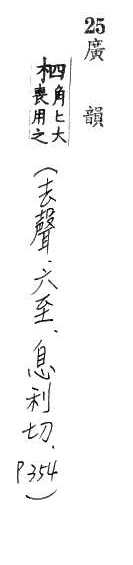 25 廣韻
柶角匕大
喪用之
(去聲、六至、息利切、P354)